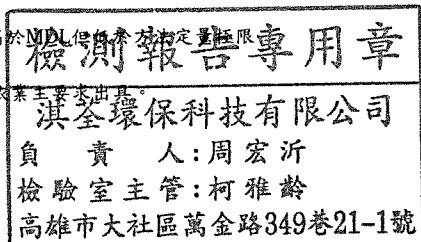 於MDL但低於方法定量極限。
檢測報告專用章
依業主要求出具。
淇荃環保科技有限公司
負責人:周宏沂
檢驗室主管:柯雅齡
高雄市大社區萬金路349巷21-1號